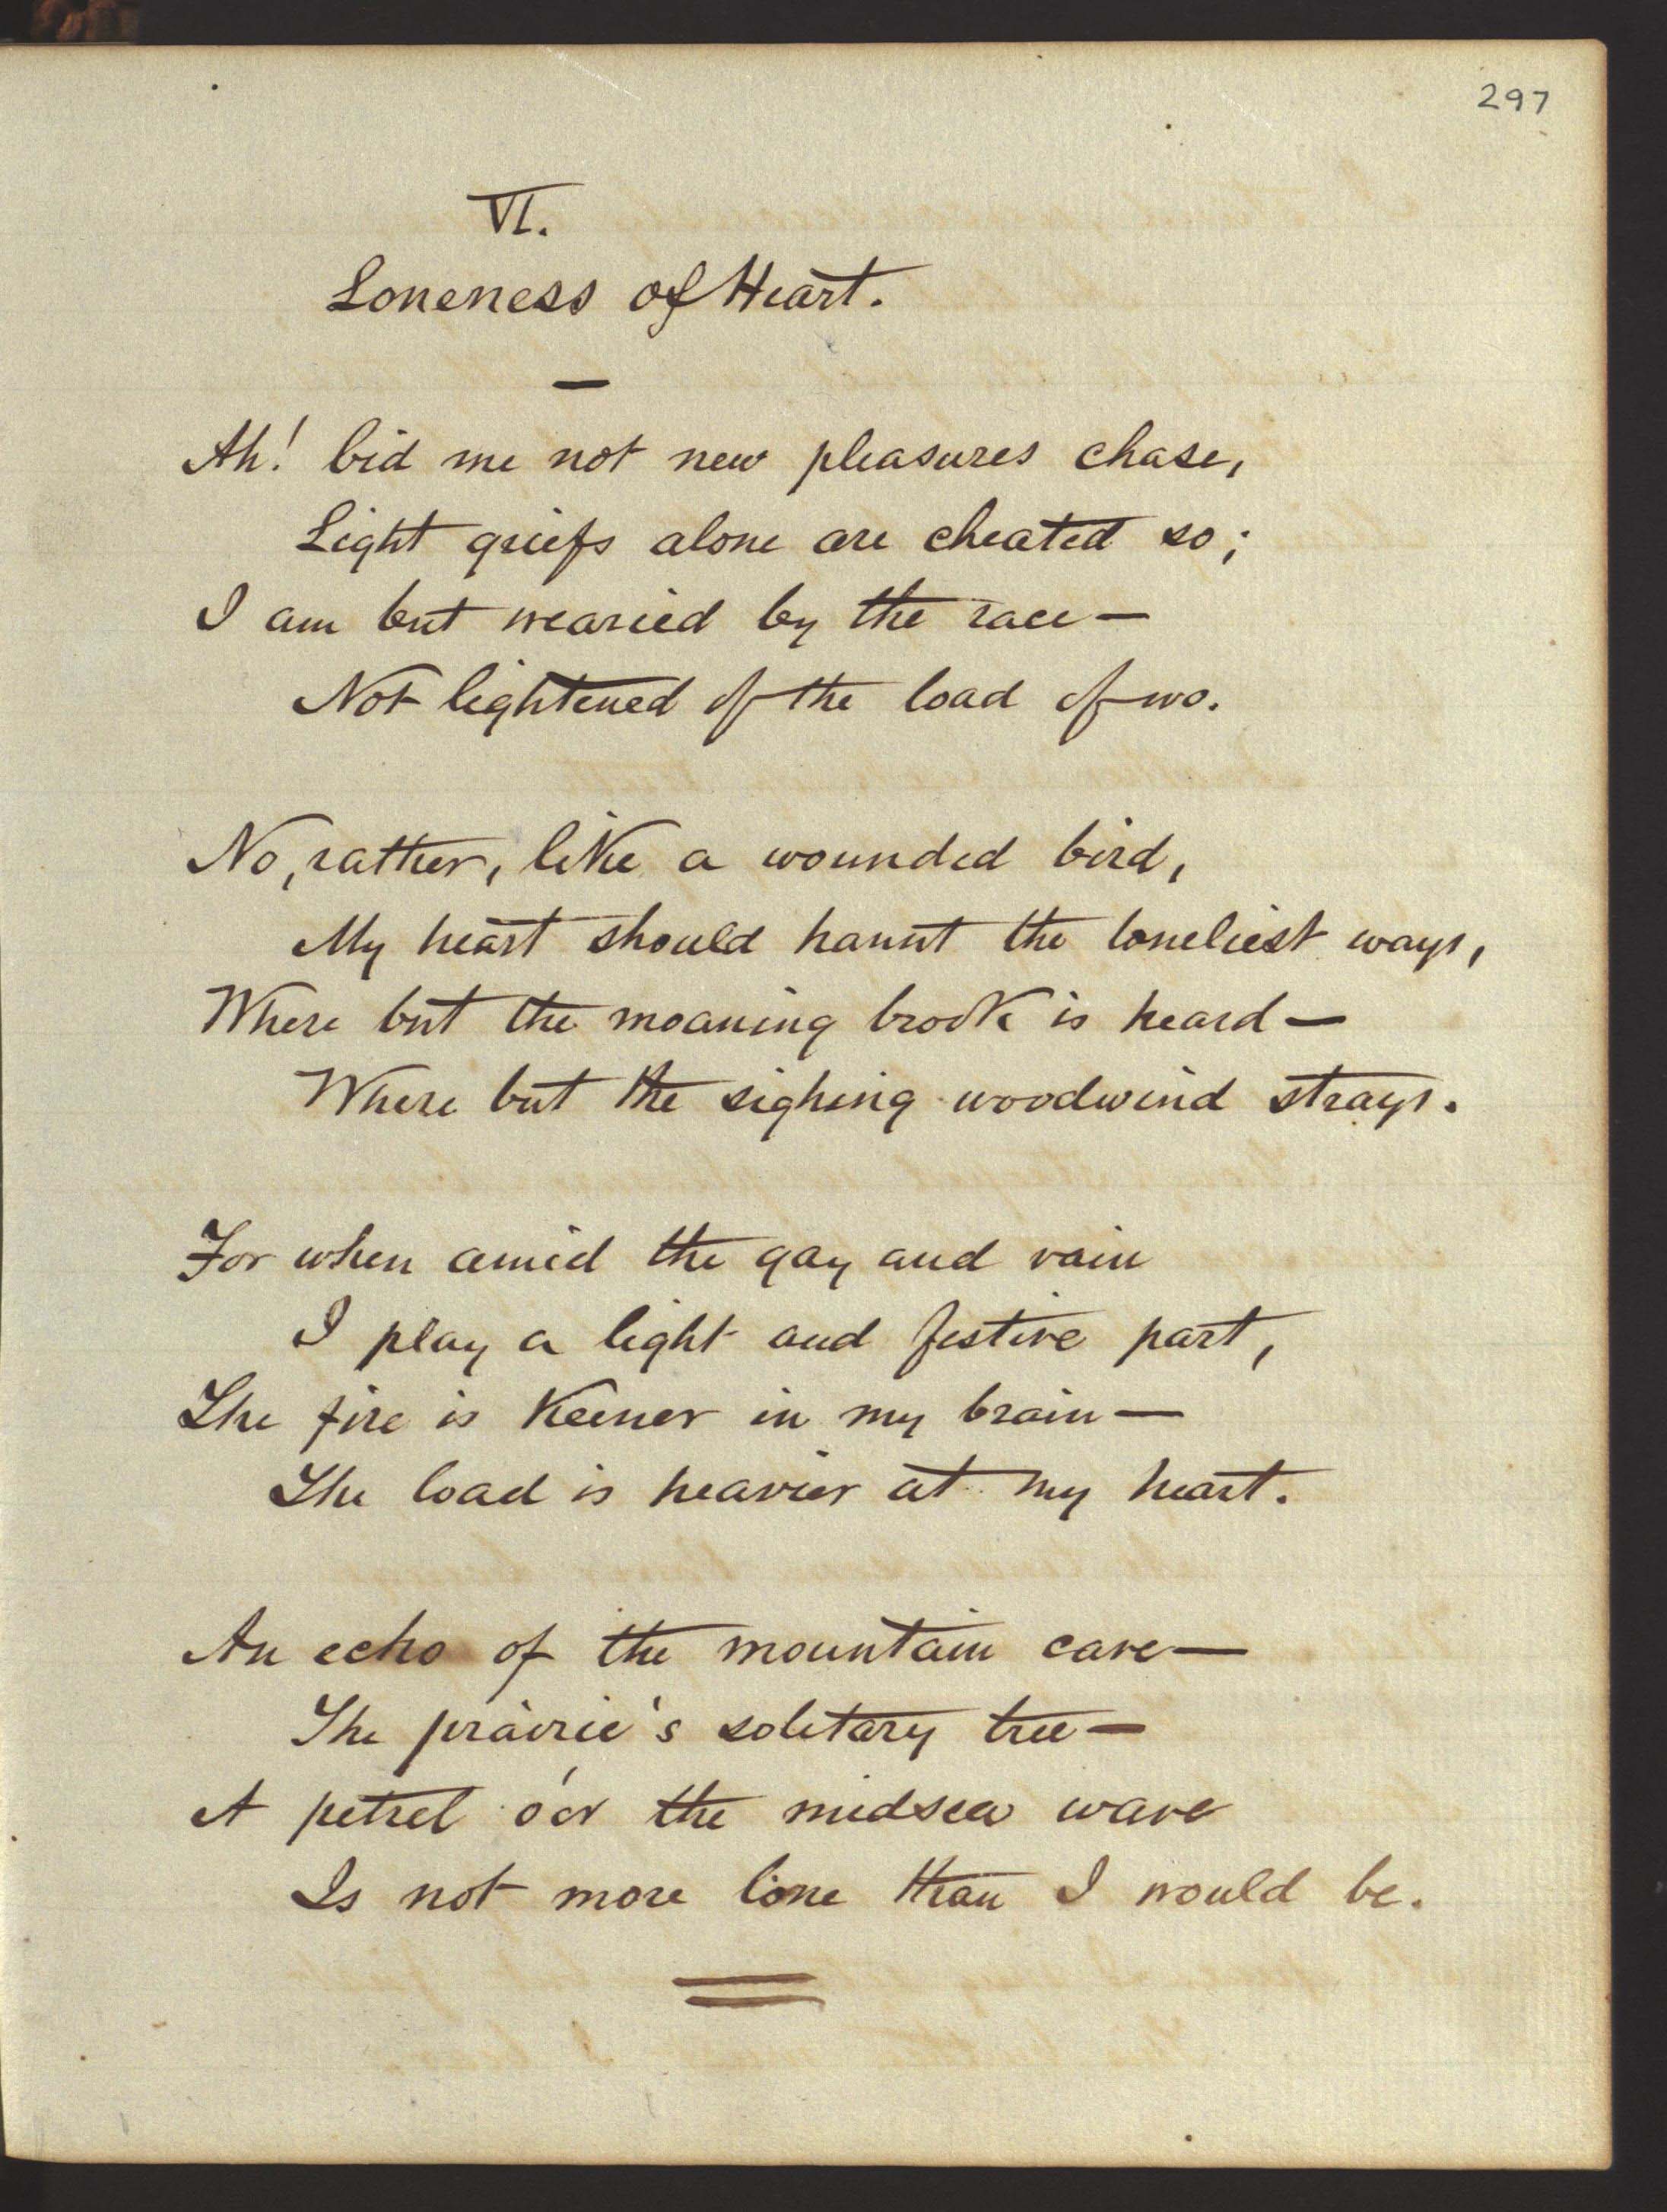 297
VI.
Loneness of Heart.
—
Ah! bid me not new pleasures chase,
Light griefs alone are cheated so;
I am but wearied by the race—
Not lightened of the load of wo.
No, rather, like a wounded bird,
My heart should haunt the loneliest ways,
Where but the moaning brook is heard—
Where but the sighing woodwind strays.
For when amid the gay and vain
I play a light and festive part,
The fire is keener in my brain—
The load is heavier at my heart.
An echo of the mountain cave—
The prairie's solitary tree—
A petrel o'er the midsea wave
Is not more lone than I would be.